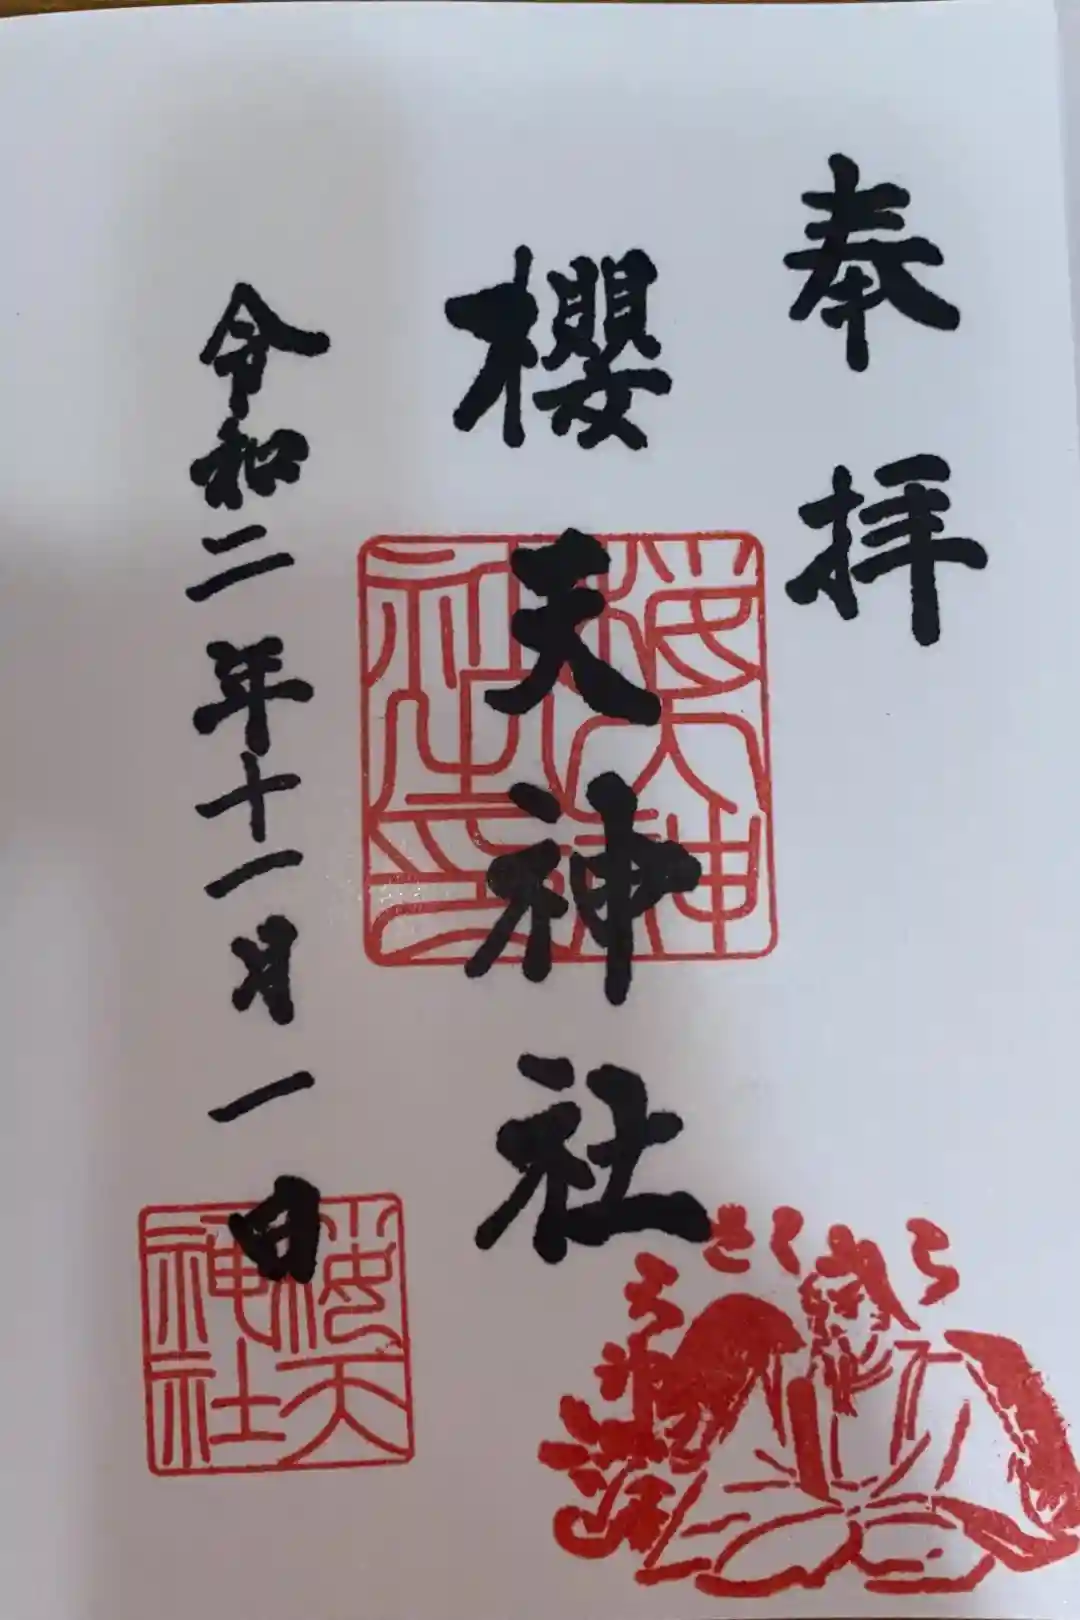 奉拝
櫻天神社
令和二年十一月一日
桜天神社印
桜天神社